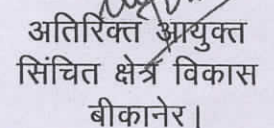 अतिरिक्त आयुक्त
सिंचित क्षेत्र विकास
बीकानेर।